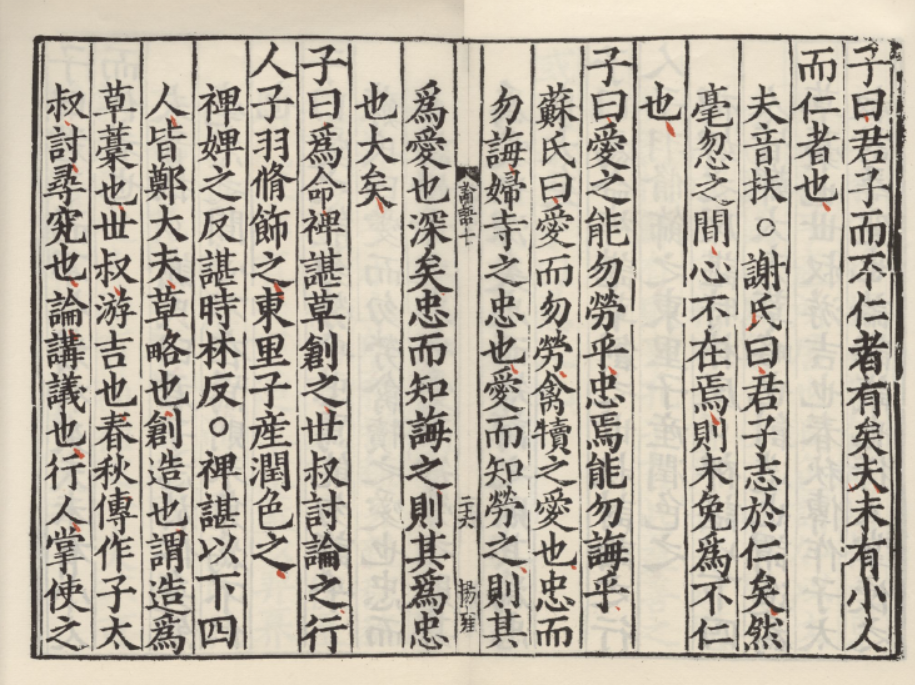 子曰君子而不仁者有矣夫未有小人
而仁者也
夫音扶○謝氏曰君子志於仁矣然
毫忽之間心不在焉則未免為不仁
也
子曰愛之能勿勞乎忠焉能勿誨乎
蘇氏曰愛而勿勞禽犢之愛也忠而
勿誨婦寺之忠也愛而知勞之則其
論語七
二十六
為愛也深矣忠而知誨之則其為忠
也大矣
子曰為命裨諶草創之世叔討論之行
人子羽脩飾之東里子產潤色之
裨婢之反諶時林反○裨諶以下四
人皆鄭大夫草略也創造也謂造為
草藁也世叔游吉也春秋傳作子太
叔討尋究也論講議也行人掌使之